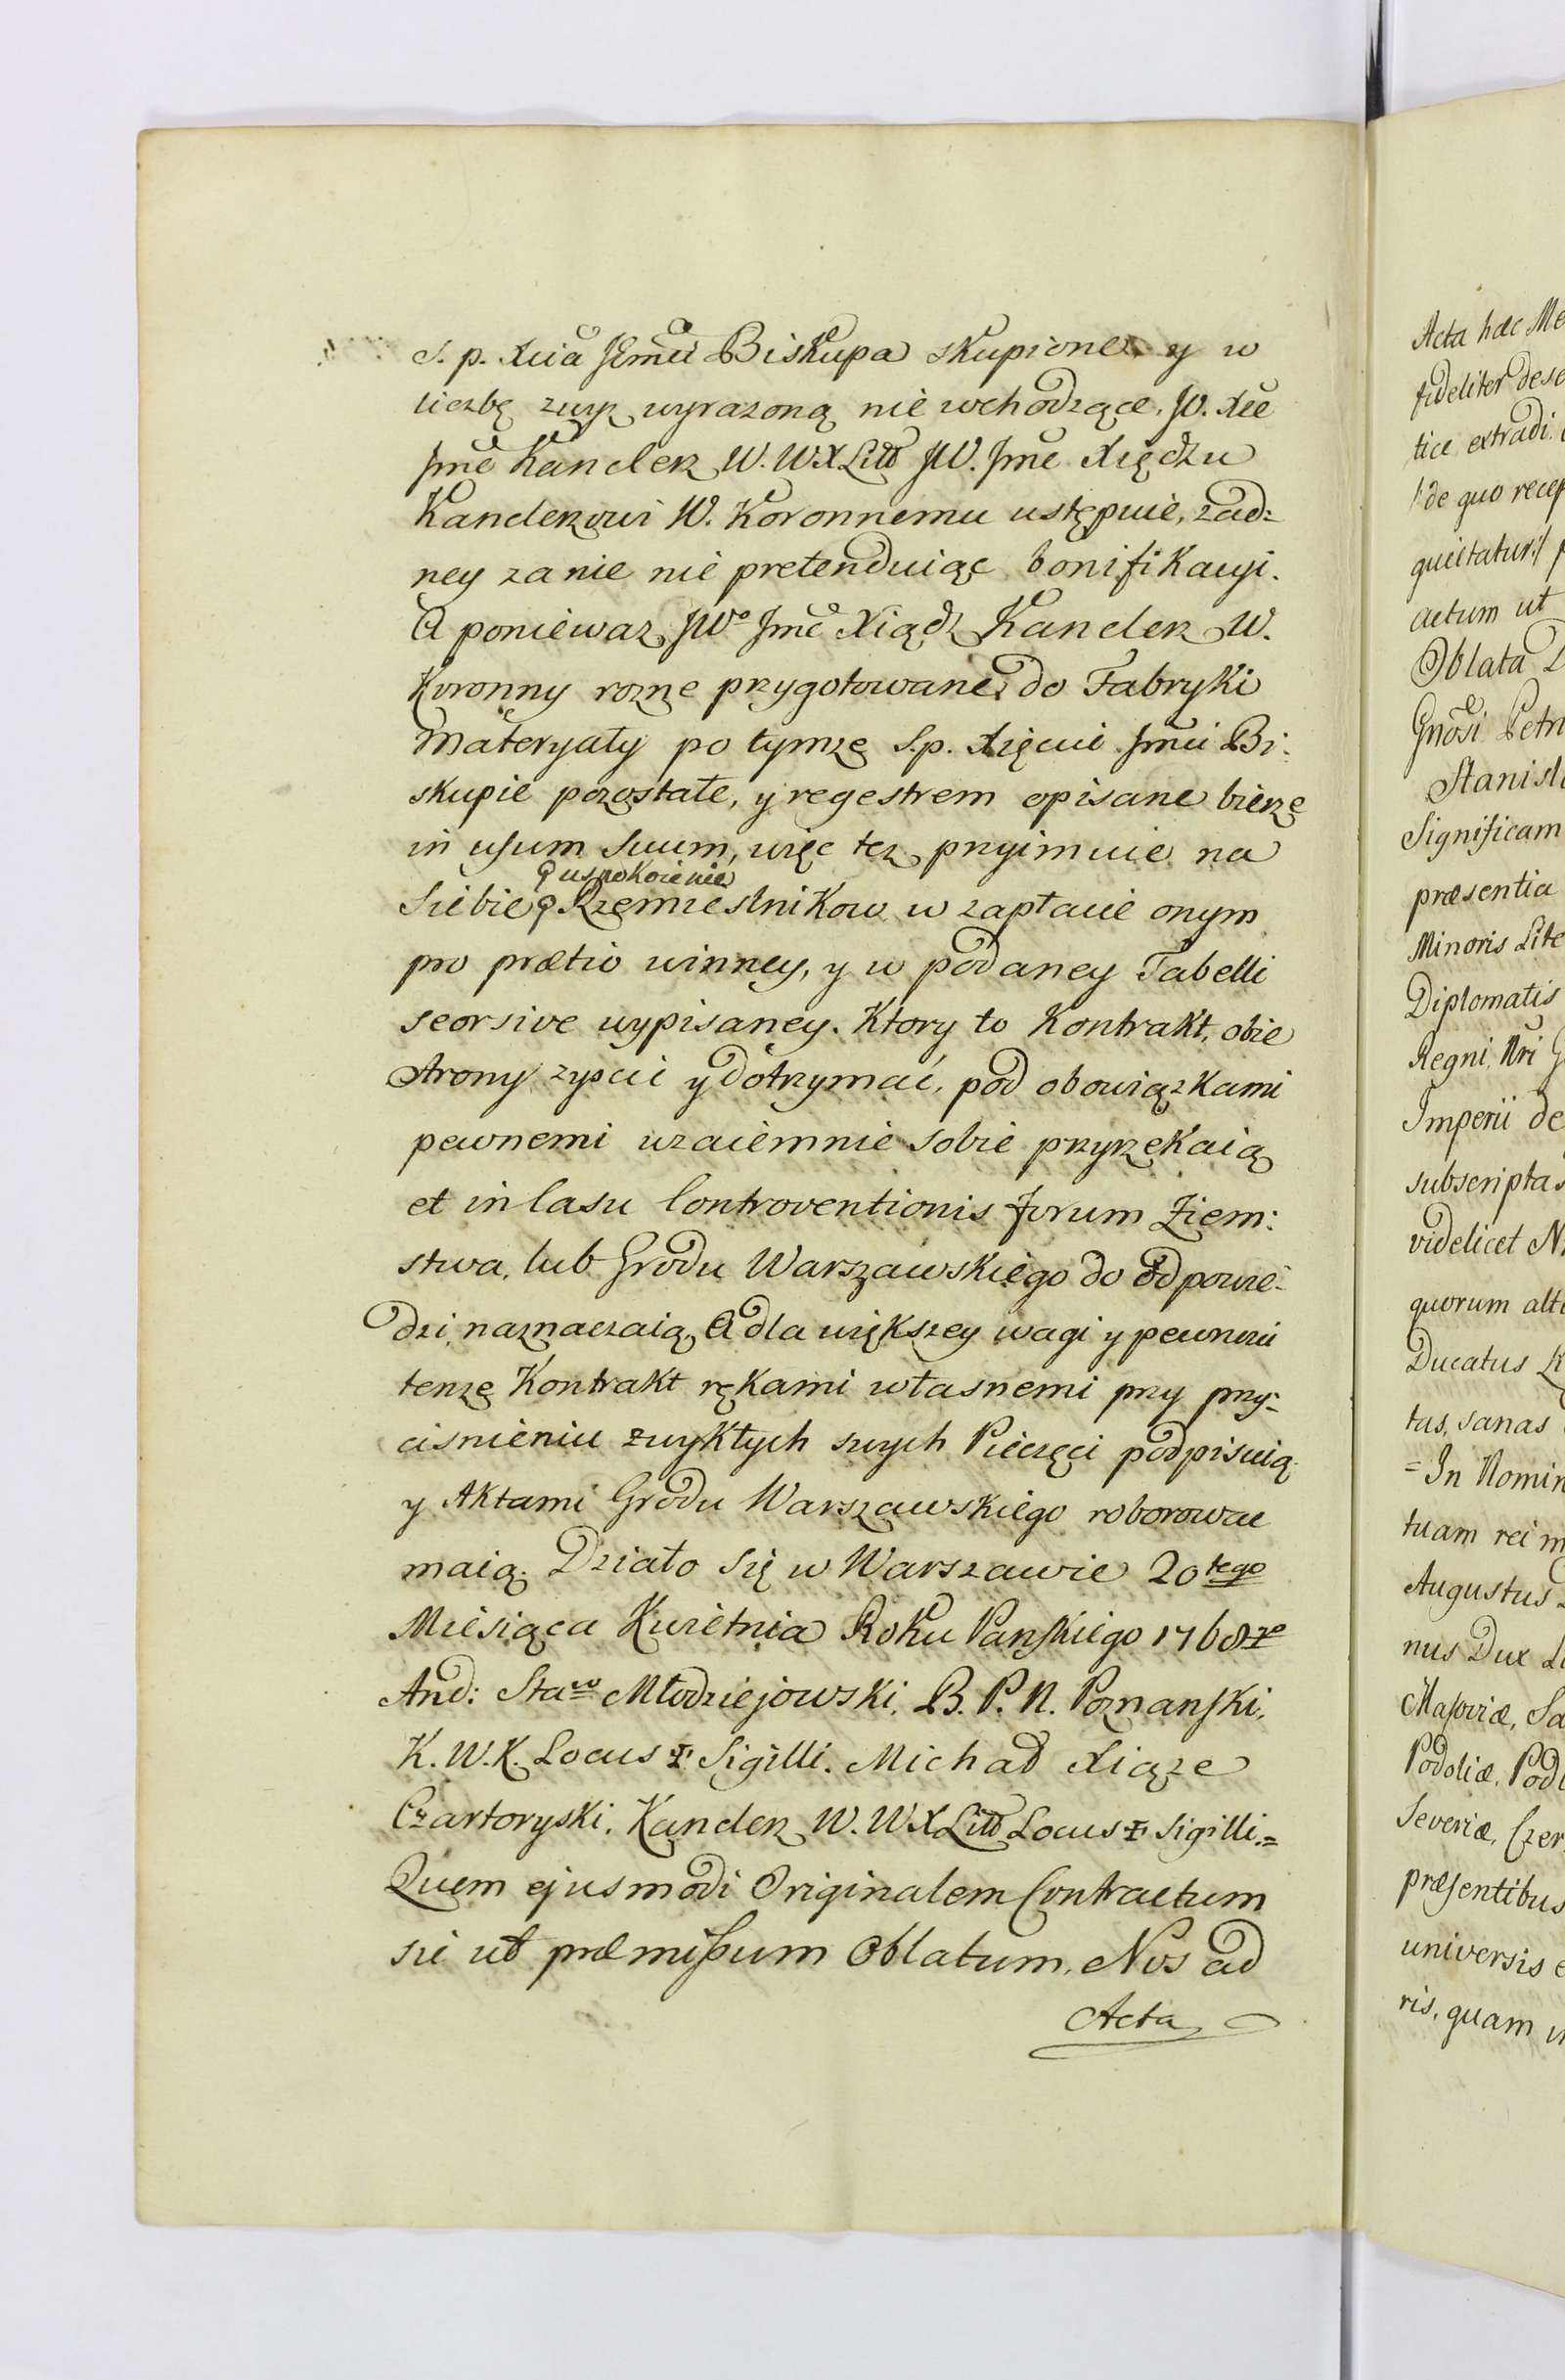 S. p. Xcia JEmci Biskupa skupione, y w
liczbę zwyż wyrażoną nie wchodzące, JO. Xże
Jmć Kanclerz W. W. X. Litt JW. Jmć Xiędzu
Kanclerzowi W. Koronnemu ustępuie, żad=
ney za nie nie pretenduiąc bonifikacyi.
A ponieważ JWo Jmć Xiądz Kanclerz W.
Koronny rożne przygotowane do Fabryki
Materyały po tymże S. p. Xięciu Jmci Bi=
skupie pozostałe, y regestrem opisane bierze
in usum suum, więc też przyimuie na
uspokoienie
Siebie Rzemieslnikow w zapłacie onym
pro prætio winney, y w podaney Tabelli
seorsive wypisaney. Ktory to Kontrakt, obie
Strony zyscić y dotrzymać, pod obowiązkami
pewnemi wzaiemnie sobie przyrzekaią
et in Casu Controventionis forum Ziem:
stwa, lub Grodu Warszawskiego do odpowie=
dzi naznaczaią, A dla większey wagi y pewności
tenże Kontrakt rękami własnemi przy przy=
cisnieniu zwykłych swych Pieczęci podpisuią
y Aktami Grodu Warszawskiego roborować
maią. Działo się w Warszawie 20tego
Miesiąca Kwietnia Roku Panskiego 1768go
And: Staw Młodziejowski, B. P. N. Poznanski,
K. W. K. Locus ✝ Sigilli. Michał Xiąże
Czartoryski, Kanclerz W. W. X. Litt Locus ✝ Sigilli.=
Quem ejusmodi Originalem Contractum
sic ut præmissum Oblatum, Nos ad
Acta
Acta hæc Me
fideliter dese
tice extradi
de quo recep
quietatur:/ p
actum ut
Oblata D
Gnosi Petri
Stanisl
Significam
præsentia
Minoris Lite
Diplomatis
Regni Nri G
Imperii de
subscriptas
videlicet N
quorum alt
Ducatus L
tas, sanas
=In Nomin
tuam rei m
Augustus
nus Dux Li
Masoviæ, Sa
Podoliæ, Podl
Severiæ, Czer
præsentibus
universis e
ris, quam